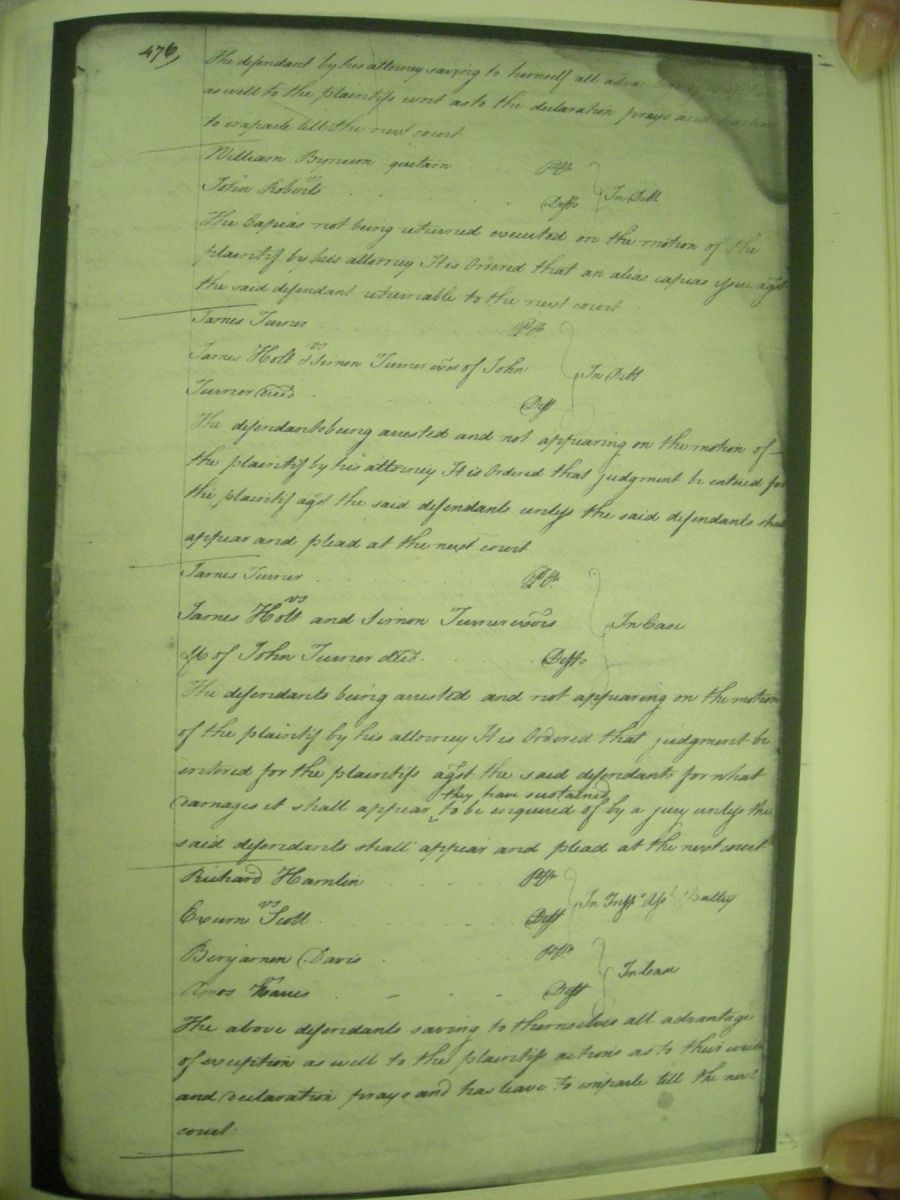 476,
The defendant by his attorney saving to himself all
as well to the plaintifs writ as to the declaration prays and
to imparle till the next court
William Bronson quitam Plt
vs
John Roberts Deft In Debt
The Capias not being returned executed on the motion of the
plaintif by his attorney It is Ordered that an alias capias issue agst
the said defendant returnable to the next court
James Turner Plt
vs
James Holt & Simon Turner exors of John In Debt
Turner decd Deft
The defendants being arested and not appearing on the motion of
the plaintif by his attorney It is Ordered that judgment be entered for
the plaintif agst the said defendants unless the said defendants shall
appear and plead at the next court
James Turner Plt
vs
James Holt and Simon Turner exors In Case
of John Turner decd Defts
The defendants being arested and not appearing on the motion
of the plaintif by his attorney It is Ordered that judgment be
entered for the plaintifs agst the said defendants for what
they have sustained
damages it shall appear ^ to be enquired of by a jury unless the
said defendants shall appear and plead at the next court
Richard Hamlin Plt
vs In Tresps Asst Battey
Exum Scott Deft
Benjamen Davis Plt
vs In Case
Amos Harris Deft
The above defendants saving to themselves all advantage
of exception as well to the plaintifs actions as to their writs
and declaration prays and has leave to imparle till the next
court.